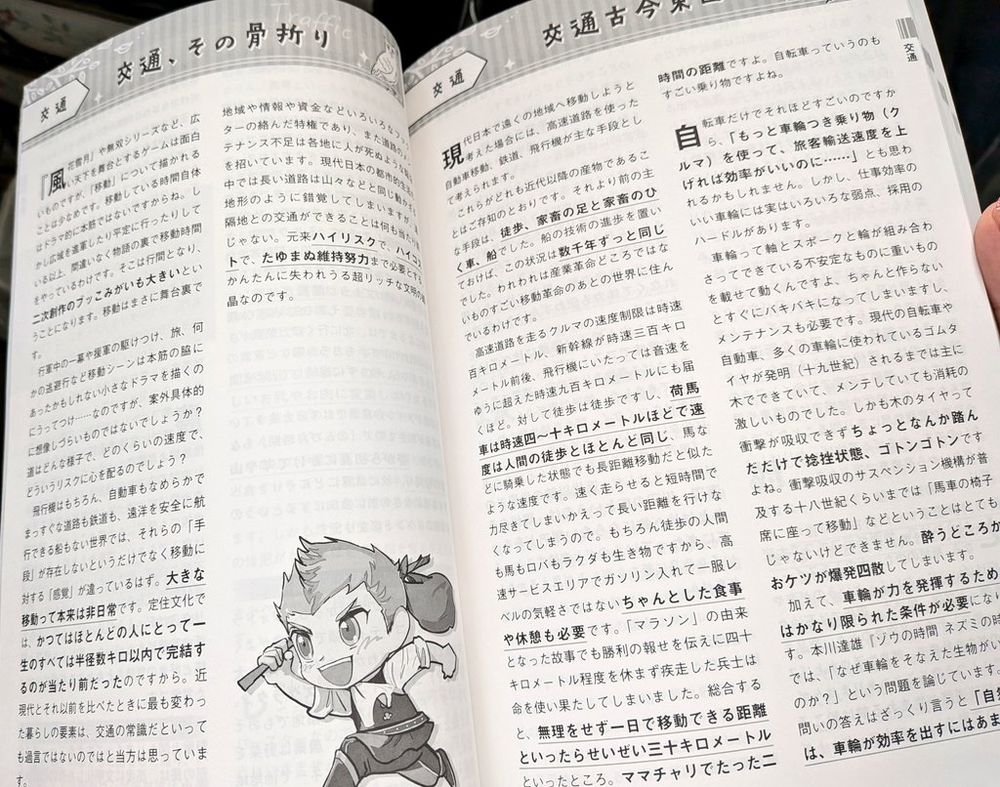 Traffic
交通、その骨折り
交通
『風花雪月』や無双シリーズなど、広
い天下を舞台とするゲームは面白
いものですが、「移動」について描かれる
ことは少なめです。移動している時間自体
はドラマ的に本筋ではないですからね。し
かし広域を進軍したり平定に行ったりして
いる以上、間違いなく物語の裏で移動時間
をやっているわけです。そこは行間となり、
二次創作のブッこみがいも大きいとい
うことになります。移動はまさに舞台裏で
す。
行軍中の一幕や援軍の駆けつけ、旅、何
かの逃避行など移動シーンは本筋の脇に
あったかもしれない小さなドラマを描くの
にうってつけ……なのですが、案外具体的
に想像しづらいものではないでしょうか？
道はどんな様子で、どのくらいの速度で、
どういうリスクに心を配るのでしょう？
飛行機はもちろん、自動車もなめらかで
まっすぐな道路も鉄道も、遠洋を安全に航
行できる船もない世界では、それらの「手
段」が存在しないというだけでなく移動に
対する「感覚」が違っているはず。大きな
移動って本来は非日常です。定住文化で
は、かつてはほとんどの人にとって一
生のすべては半径数キロ以内で完結す
るのが当たり前だったのですから。近
現代とそれ以前を比べたときに最も変わっ
た暮らしの要素は、交通の常識だといって
も過言ではないのではと当方は思っていま
す。
地域や情報や資金などいろいろな
ターの絡んだ特権であり、また道路の
テナンス不足は各地に人が死ぬような
を招いています。現代日本の都市的生活
中では長い道路は山々などと同じ動かぬ
地形のように錯覚してしまいますが、
隔地との交通ができることは何も当たり
じゃない。元来ハイリスクで、ハイコス
トで、たゆまぬ維持努力まで必要とする
かんたんに失われうる超リッチな文明の結
晶なのです。
交通古今東
交通
現代日本で遠くの地域へ移動しようと
考えた場合には、高速道路を使った
自動車移動、鉄道、飛行機が主な手段とし
て考えられます。
これらがどれも近代以降の産物であるこ
とはご存知のとおりです。それより前の主
な手段は、徒歩、家畜の足と家畜のひ
く車、船でした。船の技術の進歩を置い
ておけば、この状況は数千年ずっと同じ
でした。われわれは産業革命どころではな
いものすごい移動革命のあとの世界に住ん
でいるわけです。
高速道路を走るクルマの速度制限は時速
百キロメートル、新幹線が時速三百キロ
メートル前後、飛行機にいたっては音速を
ゆうに超えた時速九百キロメートルにも届
くほど。対して徒歩は徒歩ですし、荷馬
車は時速四〜十キロメートルほどで速
度は人間の徒歩とほとんど同じ、馬な
どに騎乗した状態でも長距離移動だと似た
ような速度です。速く走らせると短時間で
力尽きてしまいかえって長い距離を行けな
くなってしまうので。もちろん徒歩の人間
も馬もロバもラクダも生き物ですから、高
速サービスエリアでガソリン入れて一服レ
ベルの気軽さではないちゃんとした食事
や休憩も必要です。「マラソン」の由来
となった故事でも勝利の報せを伝えに四十
キロメートル程度を休まず疾走した兵士は
命を使い果たしてしまいました。総合する
と、無理をせず一日で移動できる距離
といったらせいぜい三十キロメートル
といったところ。ママチャリでたった二
時間の距離ですよ。自転車っていうのも
すごい乗り物ですよね。
自転車だけでそれほどすごいのですか
ら、「もっと車輪つき乗り物（ク
ルマ）を使って、旅客輸送速度を上
げれば効率がいいのに……」とも思わ
れるかもしれません。しかし、仕事効率の
いい車輪には実はいろいろな弱点、採用の
ハードルがあります。
車輪って輪とスポークと輪が組み合わ
さってできている不安定なものに重いもの
を載せて動くんですよ、ちゃんと作らない
とすぐにバキバキになってしまいますし、
メンテナンスも必要です。現代の自転車や
自動車、多くの車輪に使われているゴムタ
イヤが発明（十九世紀）されるまでは主に
木でできていて、メンテしていても消耗の
激しいものでした。しかも木のタイヤって
衝撃が吸収できずちょっとなんか踏ん
だだけで捻挫状態、ゴトンゴトンです
よね。衝撃吸収のサスペンション機構が普
及する十八世紀くらいまでは「馬車の椅子
席に座って移動」などということはとても
じゃないけどできません。酔うどころか
おケツが爆発四散してしまいます。
加えて、車輪が力を発揮するため
はかなり限られた条件が必要にな
す。本川達雄『ゾウの時間 ネズミの時
では、「なぜ車輪をそなえた生物がい
のか？」という問題を論じています
問いの答えはざっくり言うと「自
は、車輪が効率を出すにはあま
交通